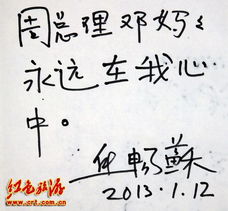 周总理邓妈々
永远在我心
中。
畅蘇
2013.1.12
红色旅游
www.crt.com.cn